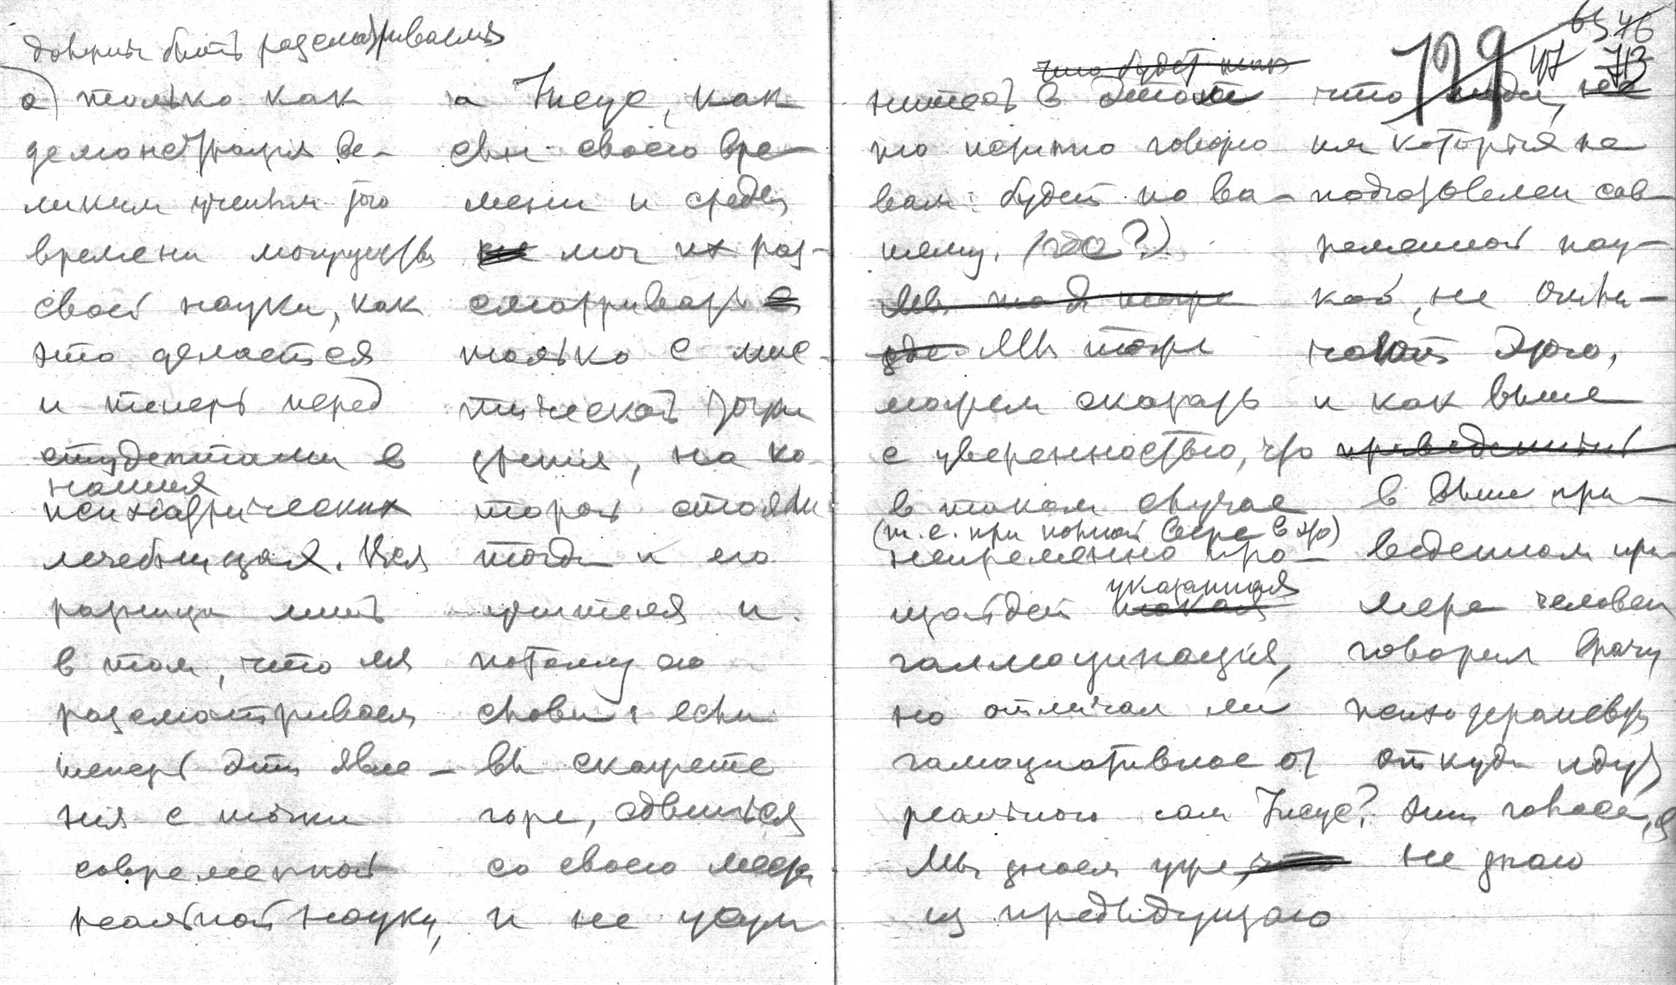 должны быть рассматриваемы
а) только как
демонстрация ве-
ликим ученым того
времени могущества
своей науки, как
это делается
и теперь перед
студентами в
наших
психиатрических
лечебницах. Вся
разница лишь
в том, что мы
рассматриваем
теперь эти явле-
ния с точки
современной
реальной науки,
а Иисус, как
сын своего вре-
мени и среды
мог их рас-
сматривать
только с мис-
тической точки
зрения, на ко-
торой стояли
тогда и его
учителя и
потому его
слова: если
вы скажете
горе, сдвинься
со своего места
и не усум-
что будет так
нитесь в этом
то истинно говорю
вам: будет по ва-
шему.
Мы тоже
можем сказать
с уверенностью, что
в таком случае
(т. е. при полной вере в это)
непременно про-
изойдет указанная
галлюцинация,
но отличал ли
галюцинативное от
реального сам Иисус?
Мы знаем уже
из предыдущего
199
65 46
47 713
что люди, не
подгото­вленные сов-
ременной нау-
кой, не отли-
чают этого,
и как выше
приведенный
в выше при-
веденном при-
мере человек
говорил врачу
психотерапевту
откуда идут
эти голоса, я
не знаю